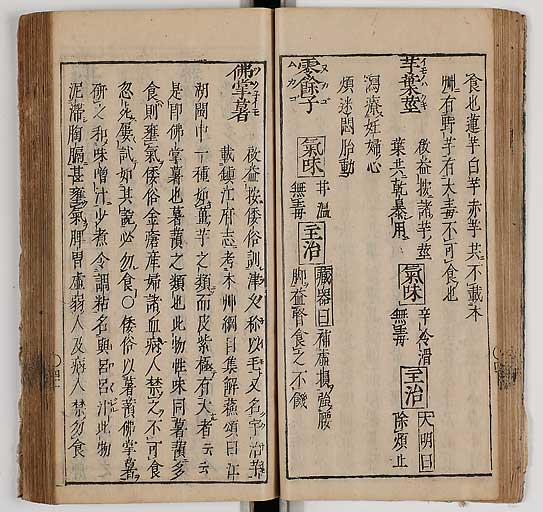 食也蓮芋白芋赤芋共不載本
艸有野芋有大毒不可食也
芋葉莖
イモノハクキ
俊益按諸芋莖
葉共乾暴用
氣味
辛冷滑
無毒
主治
大明曰
除煩止
瀉療妊婦心
煩迷悶胎動
零餘子
ヌカゴ
ムカゴ
氣味
甘溫
無毒
主治
藏器曰補虛損強腰
脚益腎食之不饑
佛掌薯
ツクネイモ
俊益按倭俗訓津又称以毛又名宇治芋
載鎮江府志考本艸綱目集解蘓頌曰江
湖閩中一種如薑芋之類而皮紫極有大者云云
是即佛掌薯也薯蕷之類也此物性味同薯蕷多
食則壅氣倭俗金瘡産婦諸血病人禁之不可食
忽先嘗試如其説必勿食〇倭俗以薯蕷佛掌薯
研之和味噌汁少煮令調粘名興呂呂汁此物
泥滞胸膈甚壅氣脾胃虛弱人及病人禁勿食